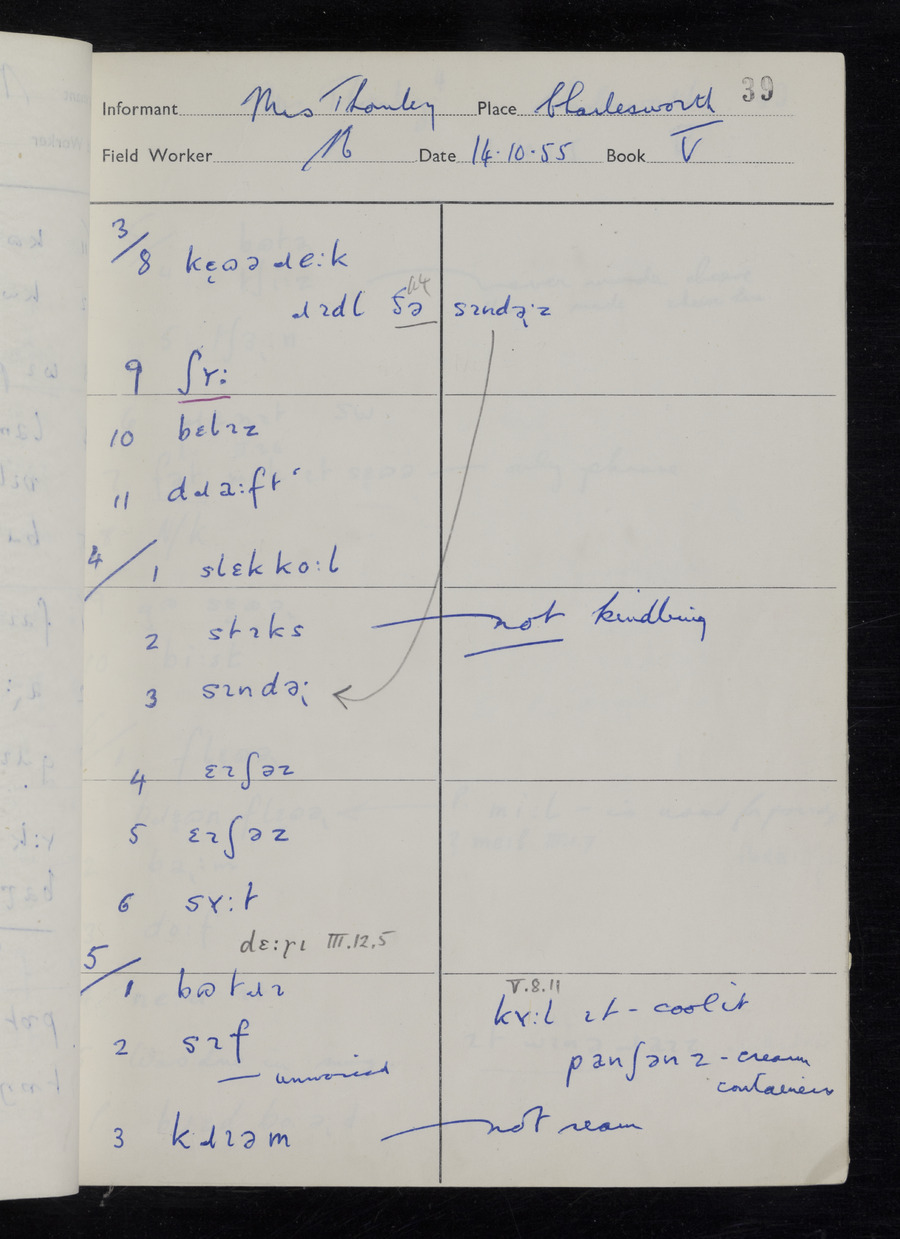 39
Informant Mrs Thornley Place Charlesworth
Field Worker Date 14.10.55 Book V
3/8 kę̈ɷə ɹeːk
ɹɪdl ðə sɪndə̨ːz
9 ʃʏː
10 bɛlɪz
11 dɹaːft
4/1 slɛk koːl
2 stɪks — not kindling
3 sɪndə̨ː
4 ɛɪʃəz
5 ɛɪʃəz
6 sʏːt
dɛːɼɩ III.12.5
5/1 bɷtɹɪ
V.8.11
kʏːl ɪt - cool it
2 sɪf
— unvoiced
panʃənz - cream
containers
3 kɹɪəm — not ream